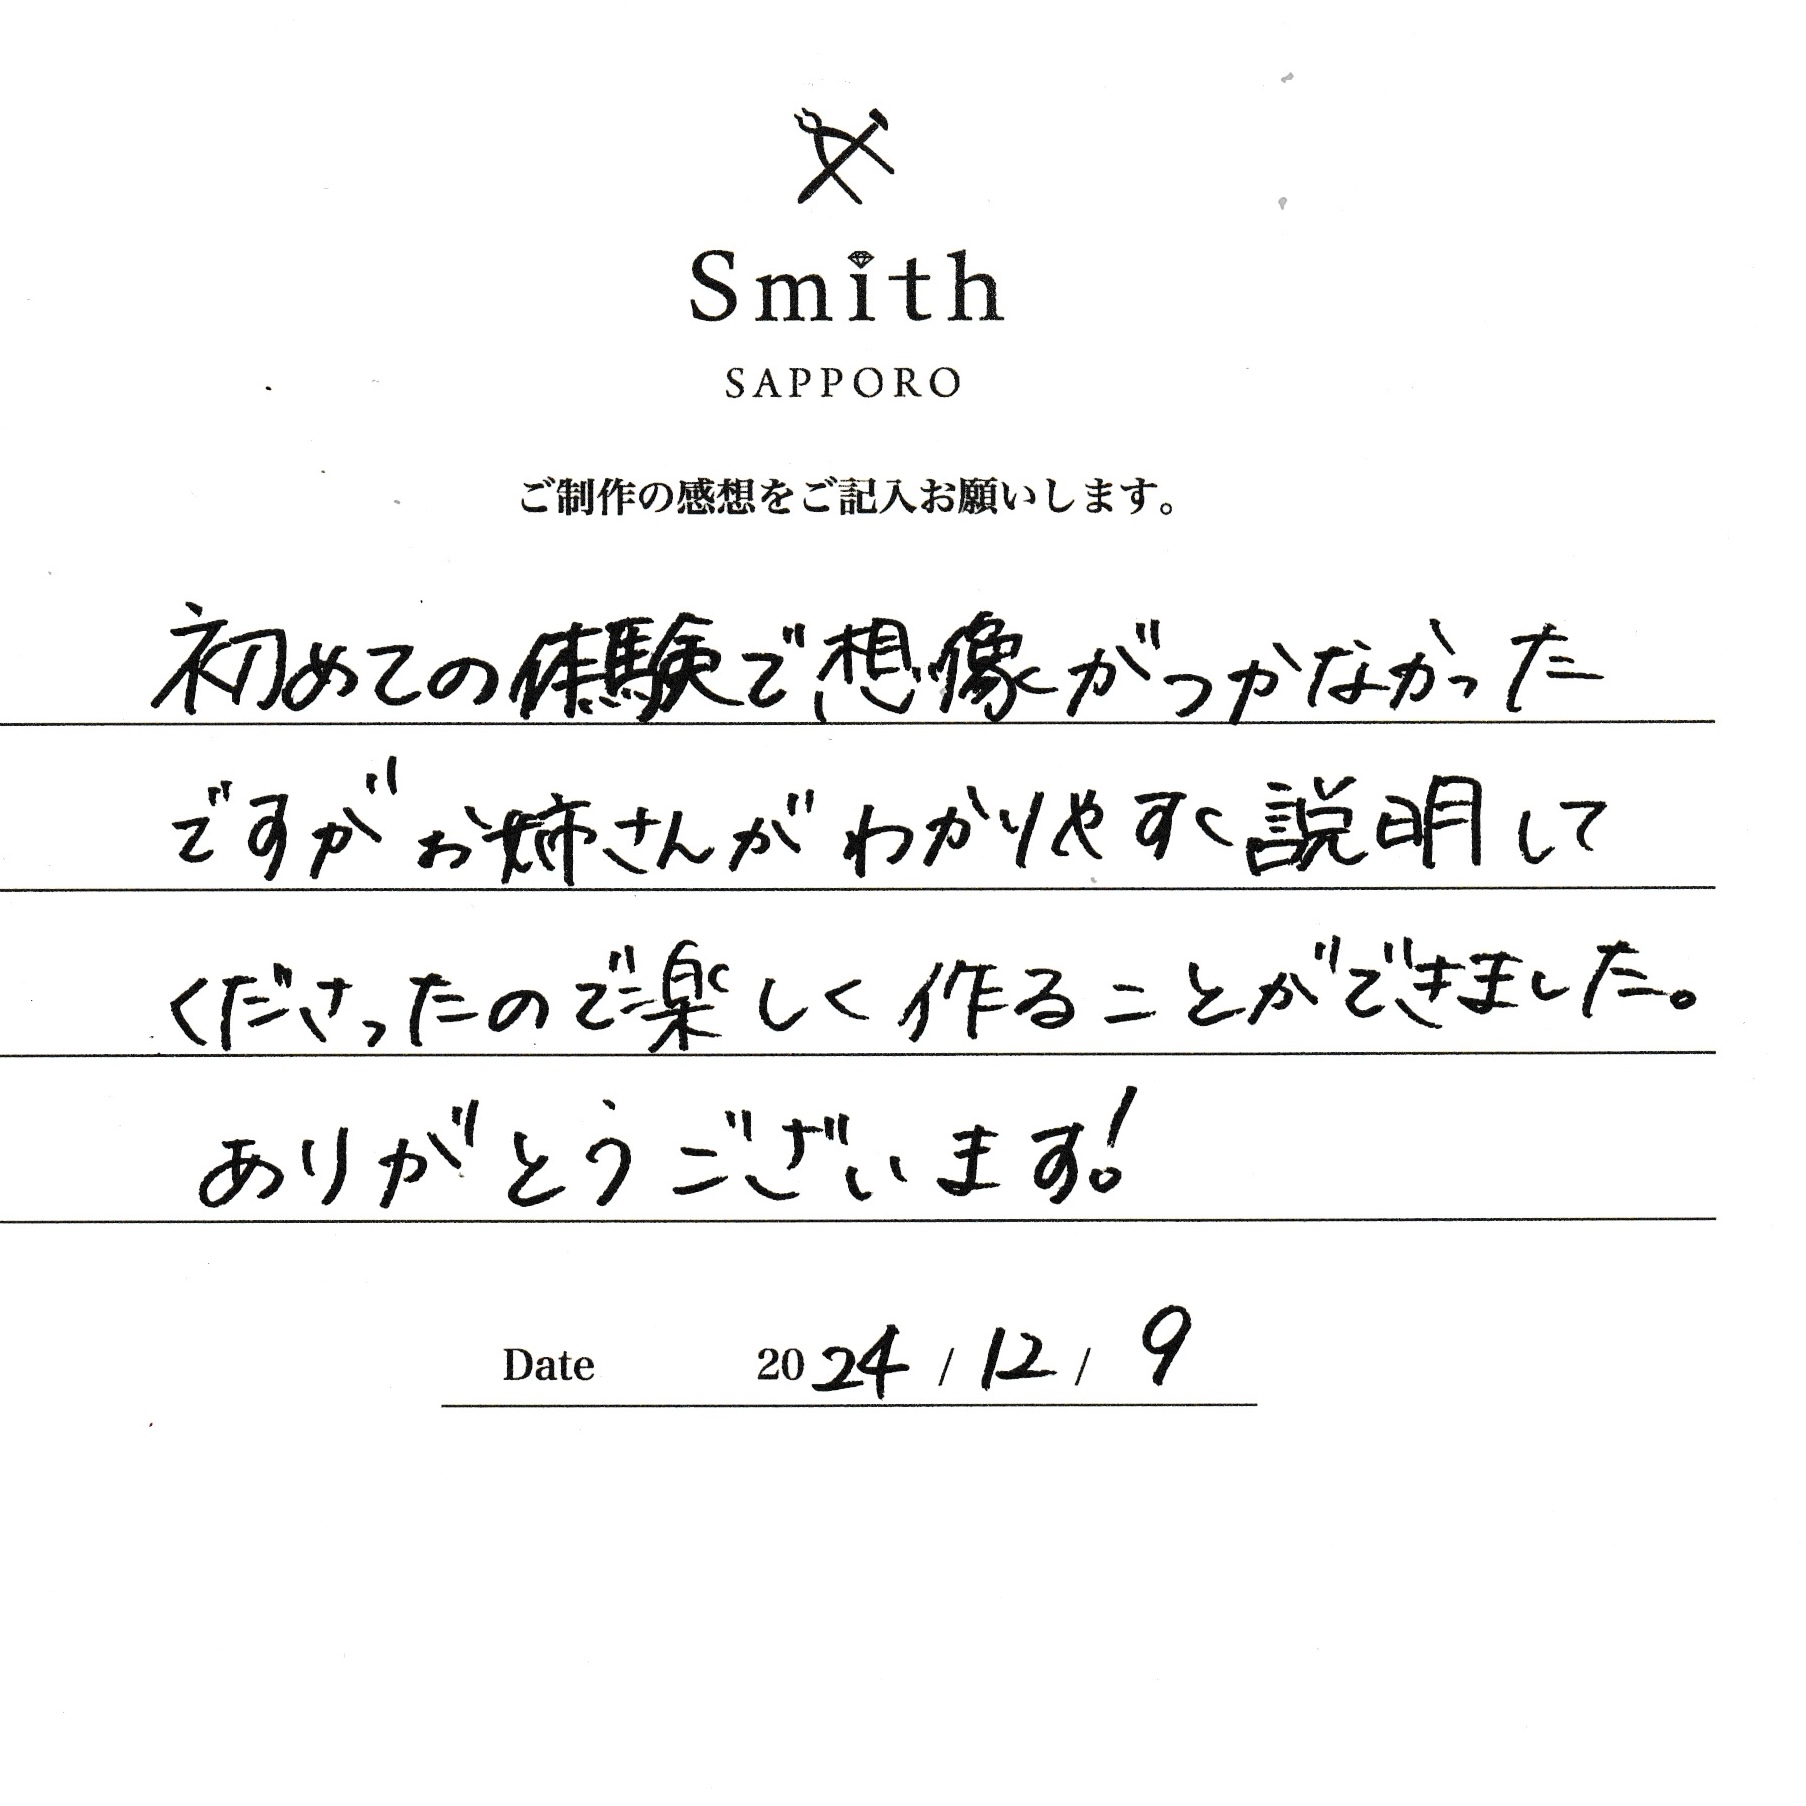 Smith
SAPPORO
ご制作の感想をご記入お願いします。
初めての体験で想像がつかなかった
ですがお姉さんがわかりやすく説明して
くださったので楽しく作ることができました。
ありがとうございます!
Date 2024 / 12 / 9